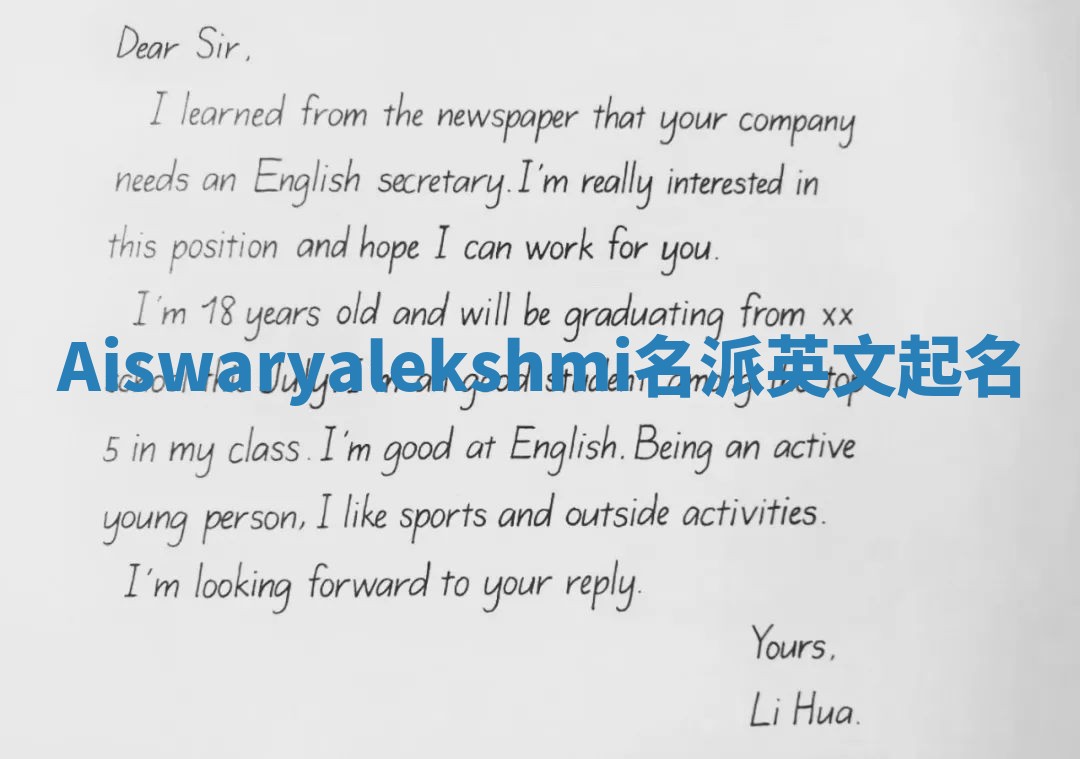 Dear Sir,
I learned from the newspaper that your company
needs an English secretary. I'm really interested in
this position and hope I can work for you.
I'm 18 years old and will be graduating from xx
Aiswaryalekshmi名派英文起名
July. I'm a good student among the top
5 in my class. I'm good at English. Being an active
young person, I like sports and outside activities.
I'm looking forward to your reply.
Yours,
Li Hua.